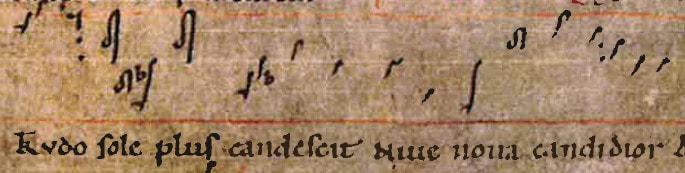 Kvdo sole plus candescit niue noua candidior